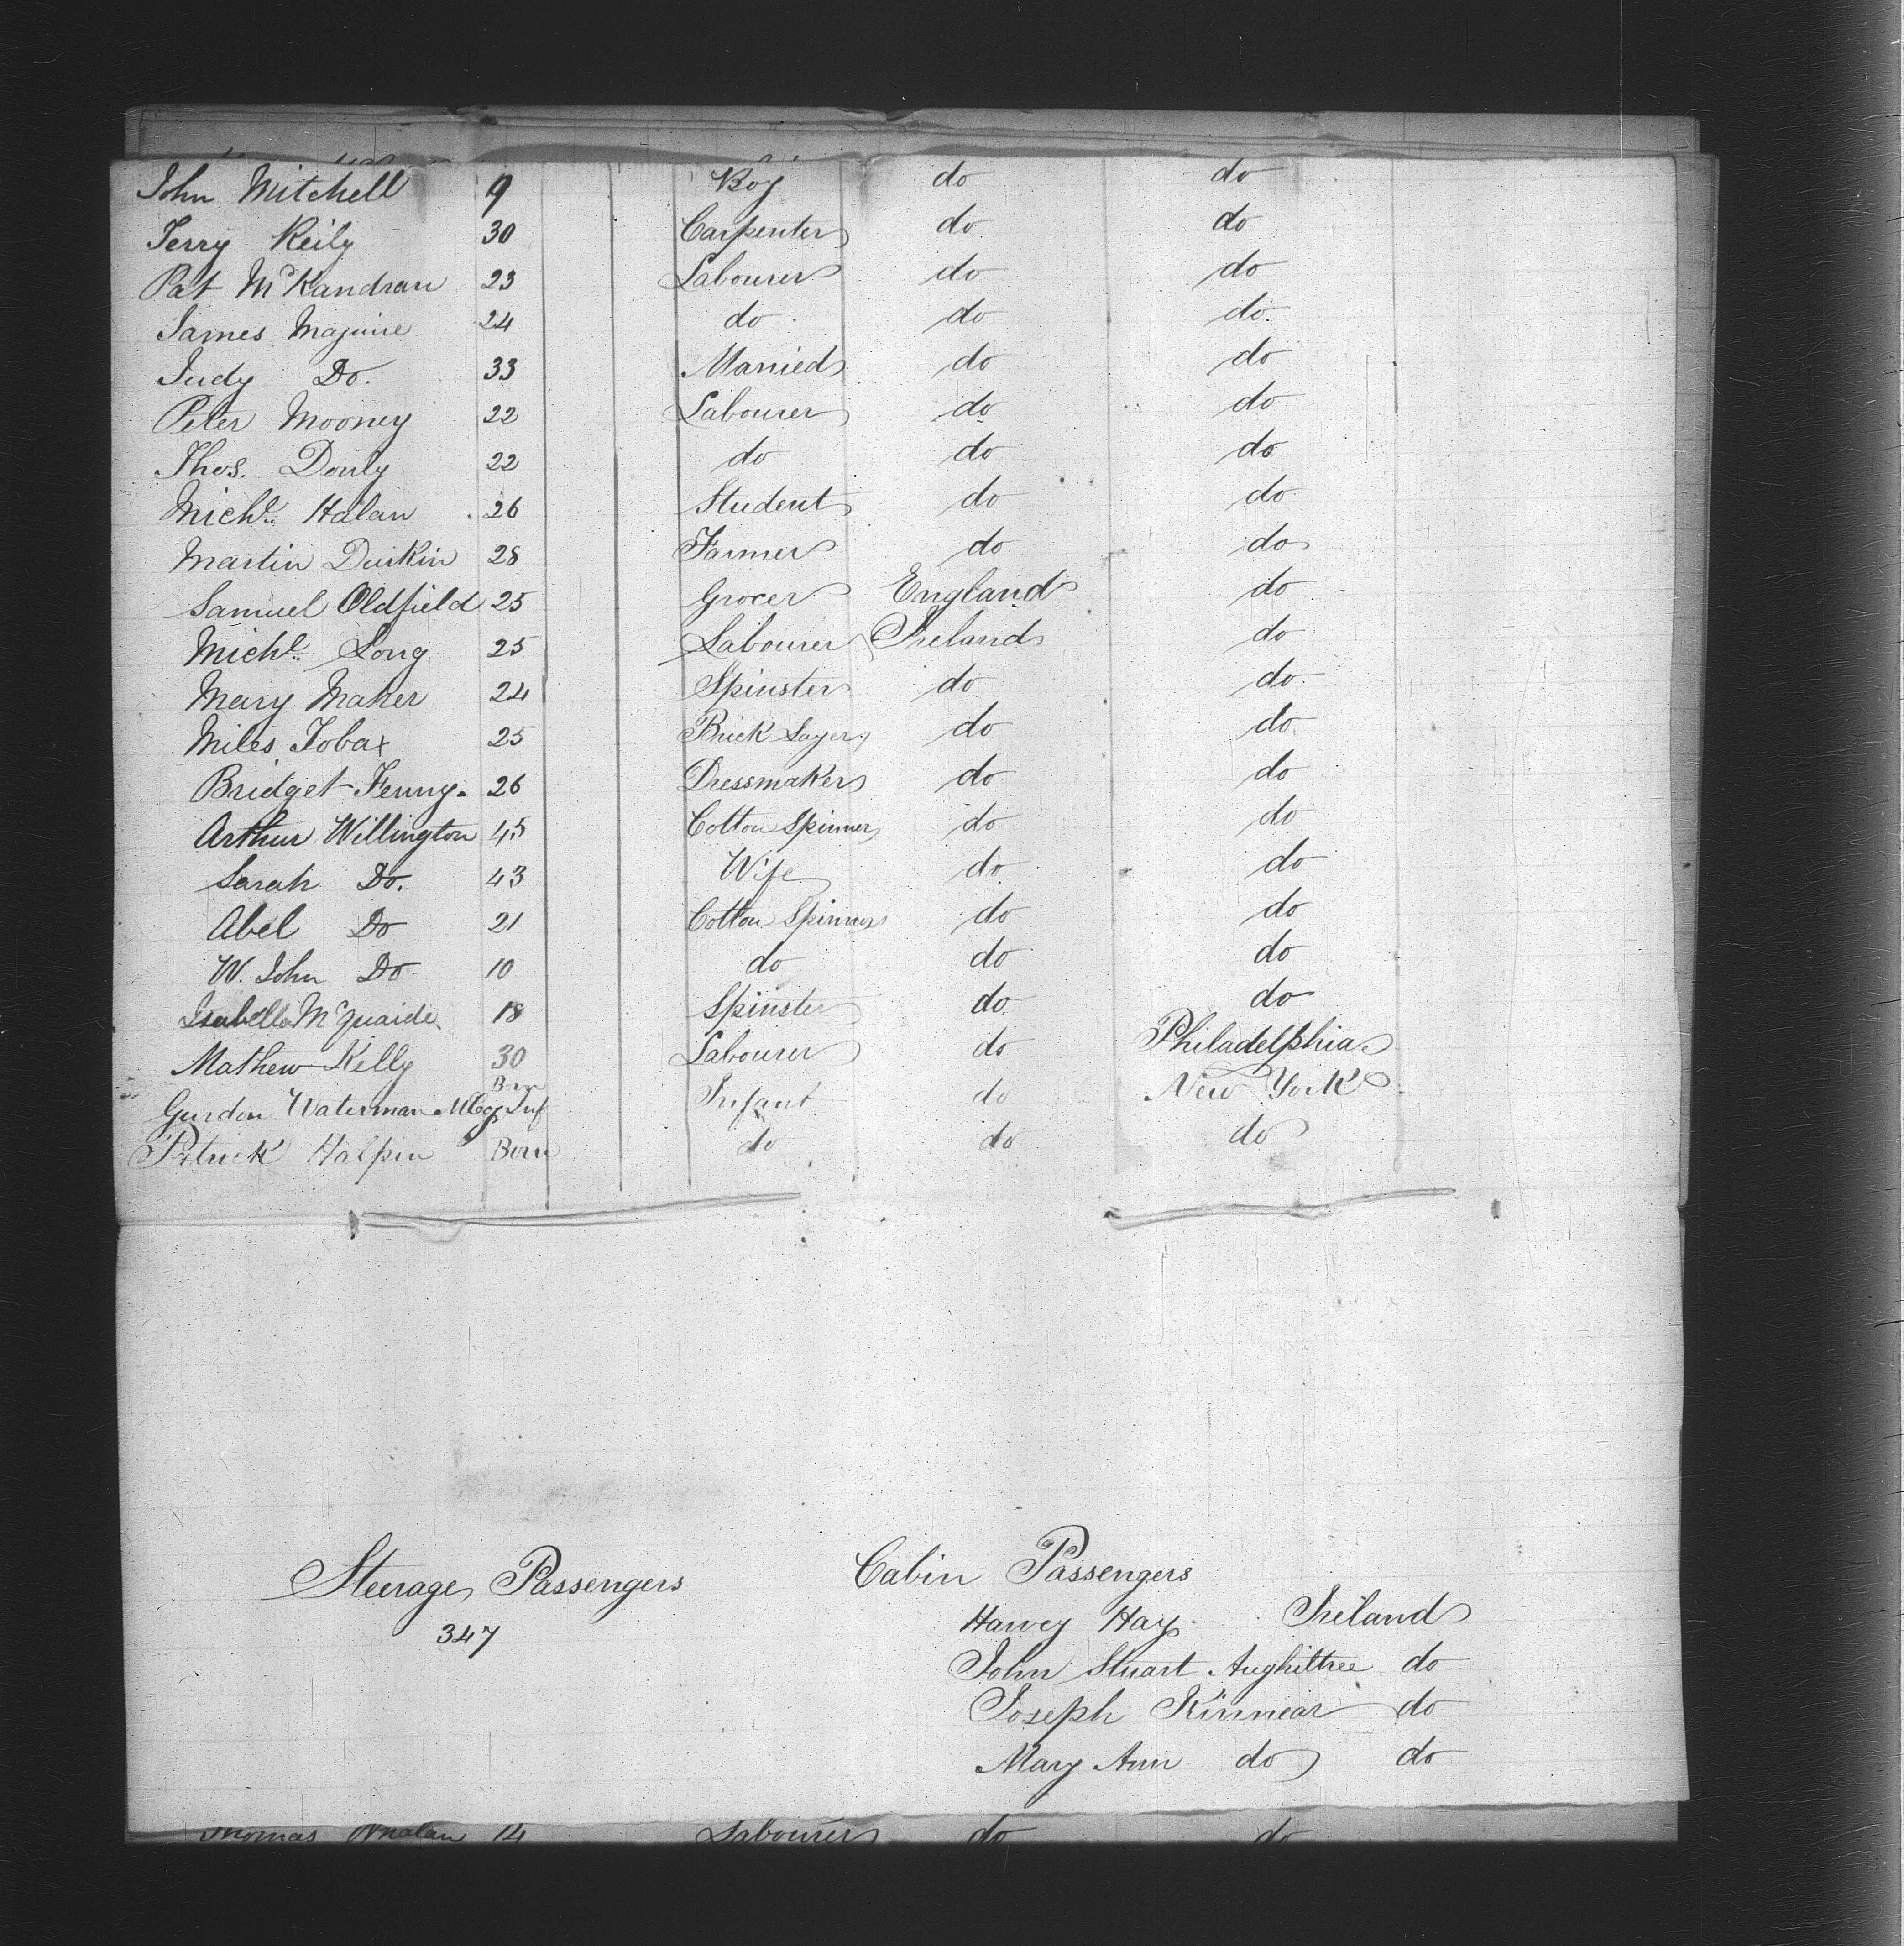 John Mitchell 9 Boy do do
Terry Reily 30 Carpenter do do
Pat McKandran 23 Labourer do do
James Maguire 24 do do do
Judy Do. 33 Married do do
Peter Mooney 22 Labourer do do
Thos. Douly 22 do do do
Michl. Halan 26 Student do do
Martin Durkin 28 Farmer do do
Samuel Oldfield 25 Grocer England do
Michl. Long 25 Labourer Ireland do
Mary Maher 24 Spinster do do
Miles Tobax 25 Brick Layer do do
Bridget Fenny. 26 Dressmaker do do
Arthur Willington 45 Cotton Spinner do do
Sarah Do. 43 Wife do do
Abel Do 21 Cotton Spinner do do
W. John Do 10 do do do
Isabella McQuaide 18 Spinster do do
Mathew Kelly 30 Labourer do Philadelphia
Gurdon Waterman Born Inf Infant do New York
Patrick Halpin Born do do do
Steerage Passengers
347
Cabin Passengers
Harvey Hay Ireland
John Stuart Aughiltree do
Joseph Kinnear do
Mary Ann do do
Thomas Whalan 14 Labourer do do